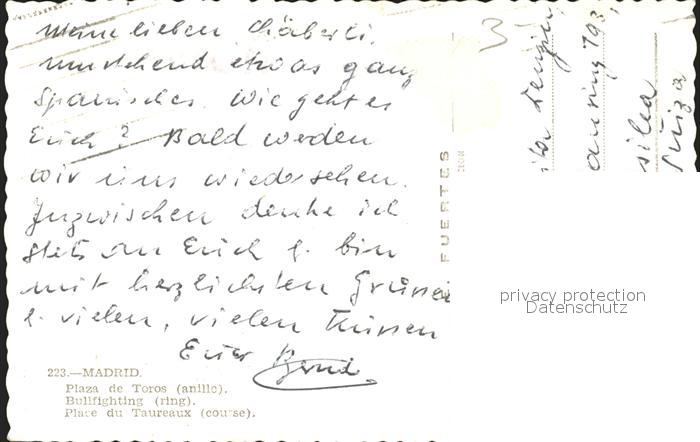 Meine lieben Chäberli,
umstehend etwas ganz
Spanisches. Wie geht es
Euch? Bald werden
wir uns wiedersehen.
Inzwischen denke ich
stets an Euch & bin
mit herzlichsten Grüssen
& vielen, vielen Küssen
Euer Bernd
223.—MADRID.
Plaza de Toros (anillo).
Bullfighting (ring).
Place du Taureaux (course).
FUERTES
3
193,
privacy protection
Datenschutz